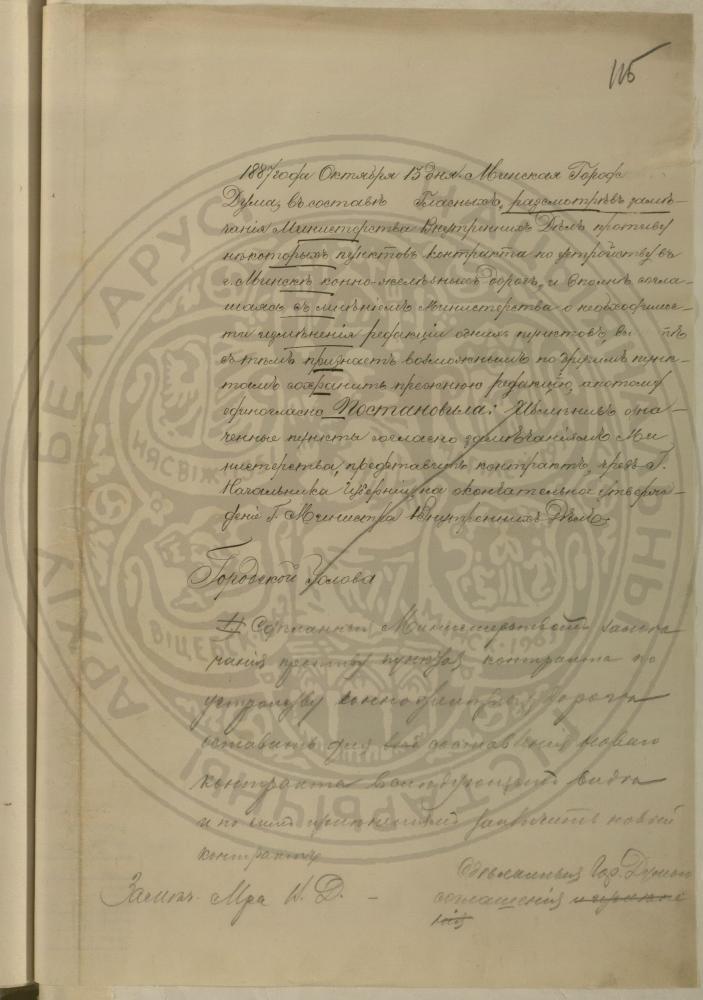 115
1887 года Октября 15 дня. Минская Городс
Дума, въ составѣ Гласныхъ, разсмотрѣвъ замѣ-
чанія Министерства Внутреннихъ Дѣлъ противу
нѣкоторыхъ пунктовъ контракта по устройству въ
г. Минскѣ конно-желѣзныхъ дорогъ, и вполнѣ согла-
шаясь съ мнѣніемъ Министерства о необходимос-
ти измѣненія редакціи однихъ пунктовъ,
съ тѣмъ признаетъ возможнымъ по другимъ пунк-
тамъ сохранить прежнюю редакцію, а потому
единогласно Постановила: Измѣнивъ озна-
ченные пункты согласно замѣчаніямъ Ми
нистерства, представить контрактъ, чрезъ Г.
Начальника Губерніи, на окончательное утверж-
деніе Г. Министра Внутреннихъ Дѣлъ.
Городской Голова
Сдѣланныя Министерствомъ замѣ
чанія противу пунктов контракта по
устройству конножелѣзныхъ дорогъ
оставить для составленія новаго
контракта
и по заключить новый
контрактъ
Замѣч. М-ра В. Д. –
Сдѣланныя Гор. Думою
соглашенія